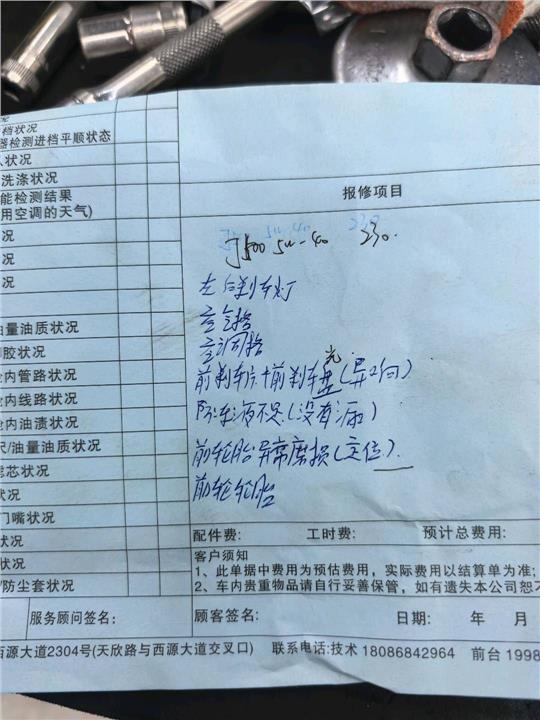 档状况
器检测进档平顺状态
状况
洗涤状况
能检测结果
用空调的天气)
报修项目
况
5w-40 230.
况
况
左后刹车灯
空气格
油量油质状况
空调格
脚胶状况
光
舱内管路状况
前刹车片+前刹车盘(异响)
舱内线路状况
防冻液不足(没有漏)
舱内油渍状况
尺/油量油质状况
前轮胎异常磨损(定位)
滤芯状况
状况
前轮轮胎
门嘴状况
状况
配件费: 工时费: 预计总费用:
状况
客户须知
1、此单据中费用为预估费用，实际费用以结算单为准;
/防尘套状况
2、车内贵重物品请自行妥善保管，如有遗失本公司恕不
服务顾问签名:
顾客签名: 日期: 年 月
西源大道2304号(天欣路与西源大道交叉口) 联系电话:技术 18086842964 前台 1998